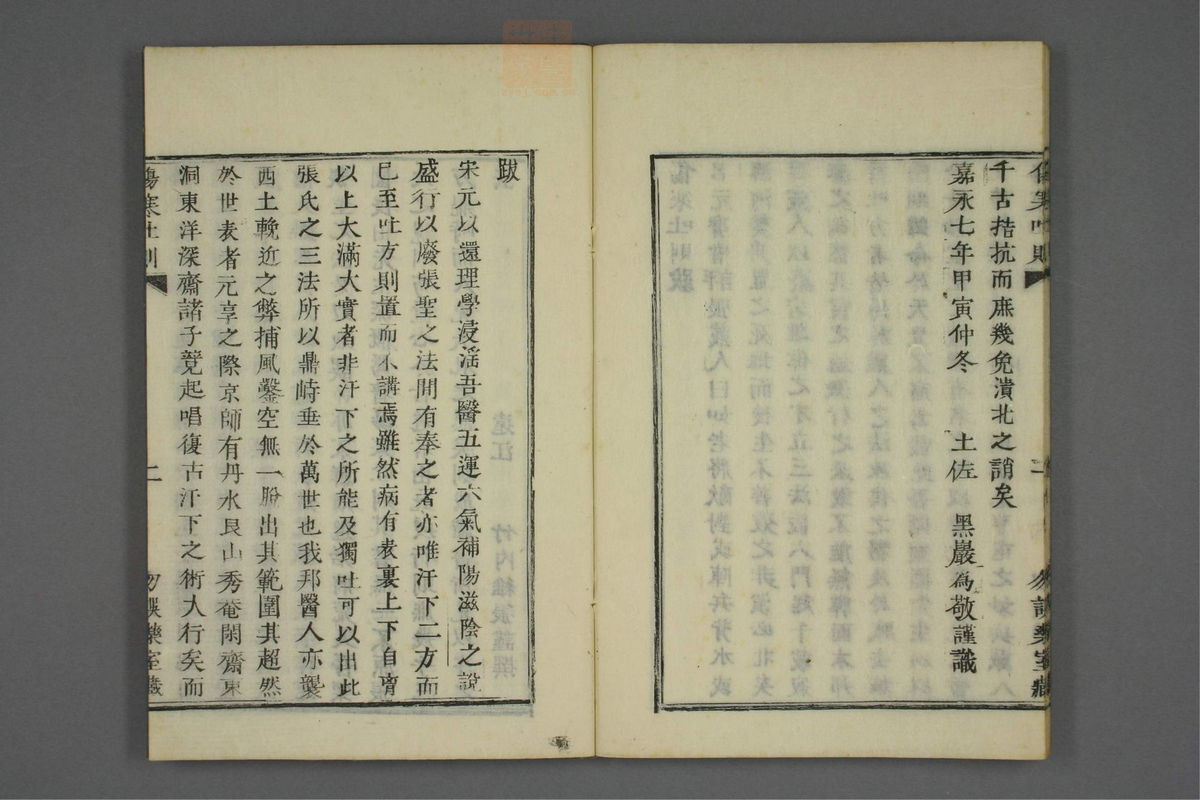 千古拮抗而庶幾免潰北之誚矣
嘉永七年甲寅仲冬 土佐 黑巖為敬謹識
傷寒吐則 二 勿誤藥室藏
跋
宋元以還理學浸淫吾醫五運六氣補陽滋陰之說
盛行以廢張聖之法間有奉之者亦唯汗下二方而
已至吐方則置而不講焉雖然病有表裏上下自胷
以上大滿大實者非汗下之所能及獨吐可以出此
張氏之三法所以鼎峙垂於萬世也我邦醫人亦襲
西土輓近之弊捕風鑿空無一脫出其範圍其超然
於世表者元享之際京師有丹水艮山秀菴閑齋東
洞東洋深齋諸子競起唱復古汗下之術大行矣而
傷寒吐則 二 勿誤藥室藏